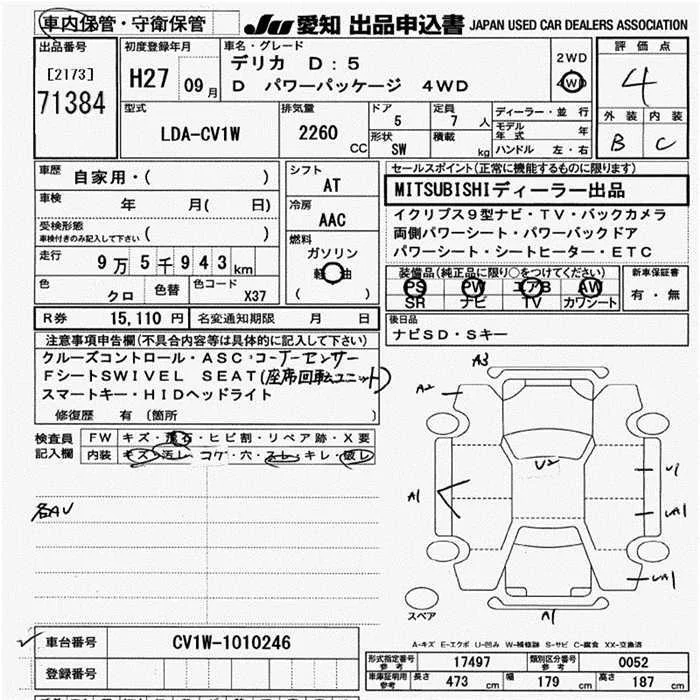 車内保管・守衛保管
JU 愛知 出品申込書 JAPAN USED CAR DEALERS ASSOCIATION
出品番号
[2173]
71384
初度登録年月
H27 09月
車名・グレード
デリカ D:5
D パワーパッケージ 4WD
2WD
4WD
評価点
4
外装 内装
B C
型式
LDA-CV1W
排気量
2260 CC
ドア
5
形状
SW
定員
7 人
積載
kg
ディーラー・並行
モデル年式 年
ハンドル 左・右
車歴
自家用・( )
車検
年 月( 日)
受検形態
車検付きのみ記入して下さい ( )
走行
9万5千943km
色
クロ
色替
色コード
X37
シフト
AT
冷房
AAC
燃料
ガソリン
軽油
( )
セールスポイント(正常に機能するものに限ります)
MITSUBISHIディーラー出品
イクリプス9型ナビ・TV・バックカメラ
両側パワーシート・パワーバックドア
パワーシート・シートヒーター・ETC
装備品(純正品に限り○をつけてください)
PS PW エアB AW
SR ナビ TV カワシート
新車保証書
有・無
R券 15,110円 名変通知期限 月 日
後日品
ナビSD・Sキー
注意事項申告欄(不具合内容等は具体的に記入して下さい)
クルーズコントロール・ASC・コーナーセンサー
FシートSWIVEL SEAT(座席回転ユニット)
スマートキー・HIDヘッドライト
修復歴 有 (箇所 )
検査員記入欄
FW キズ・飛石・ヒビ割・リペア跡・X要
内装 キズ・汚レ・コゲ・穴・スレ・キレ・破レ
各AU
A3
A2
U2
A1
U1
UA1
UA1
A1
スペア
A-キズ E-エクボ U-凹み W-補修跡 S-サビ C-腐食 XX-交換済
車台番号 CV1W-1010246
登録番号
形式指定番号 参考 17497 類別区分番号 参考 0052
車庫証明用 参考 長さ 473 cm 幅 179 cm 高さ 187 cm